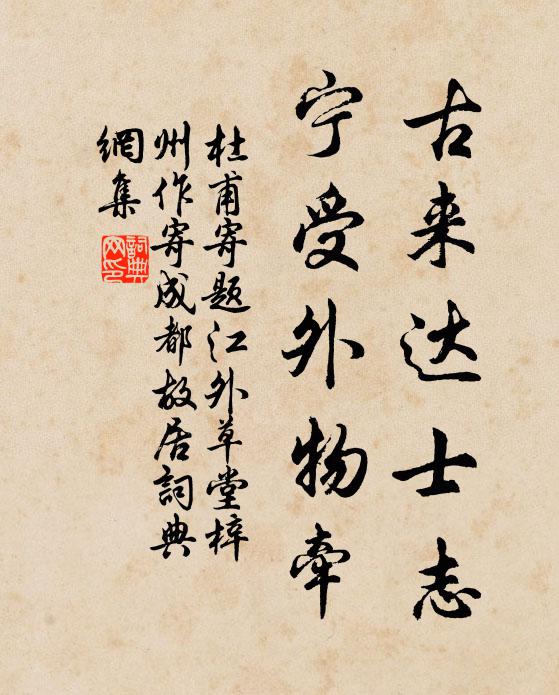 古来达士志
宁受外物牵
杜甫寄题江外草堂梓
州作寄成都故居詞典
網集
詞典网印